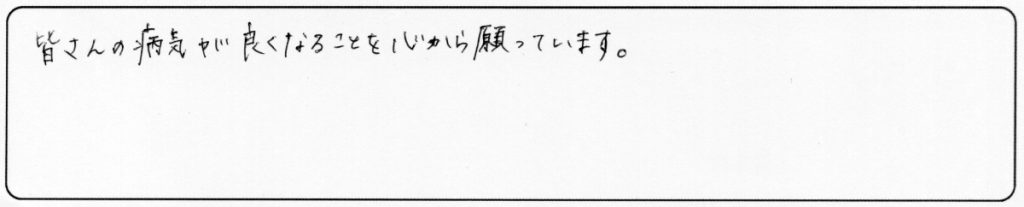 皆さんの病気が良くなることを心から願っています。